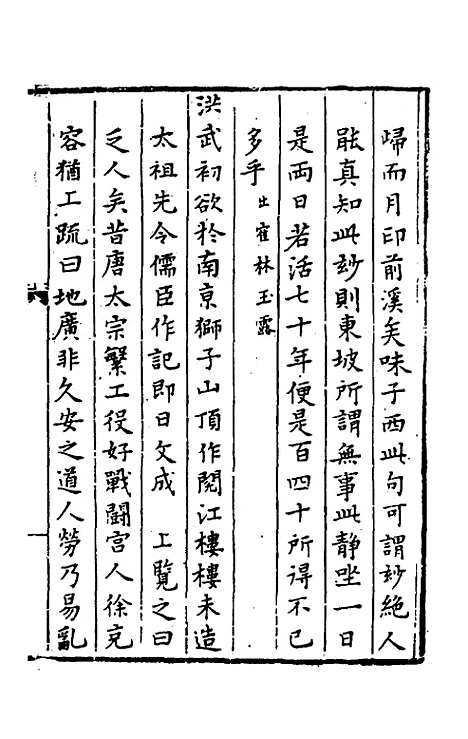 歸而月印前溪矣味子西此句可謂玅絕人
能真知此玅則東坡所謂無事此靜坐一日
是兩日若活七十年便是百四十所得不已
多乎出寉林玉露
洪武初欲於南京獅子山頂作閱江樓樓未造
太祖先令儒臣作記即日文成　上覽之曰
乏人矣昔唐太宗繁工役好戰鬬宮人徐充
容猶上疏曰地廣非久安之道人勞乃易亂